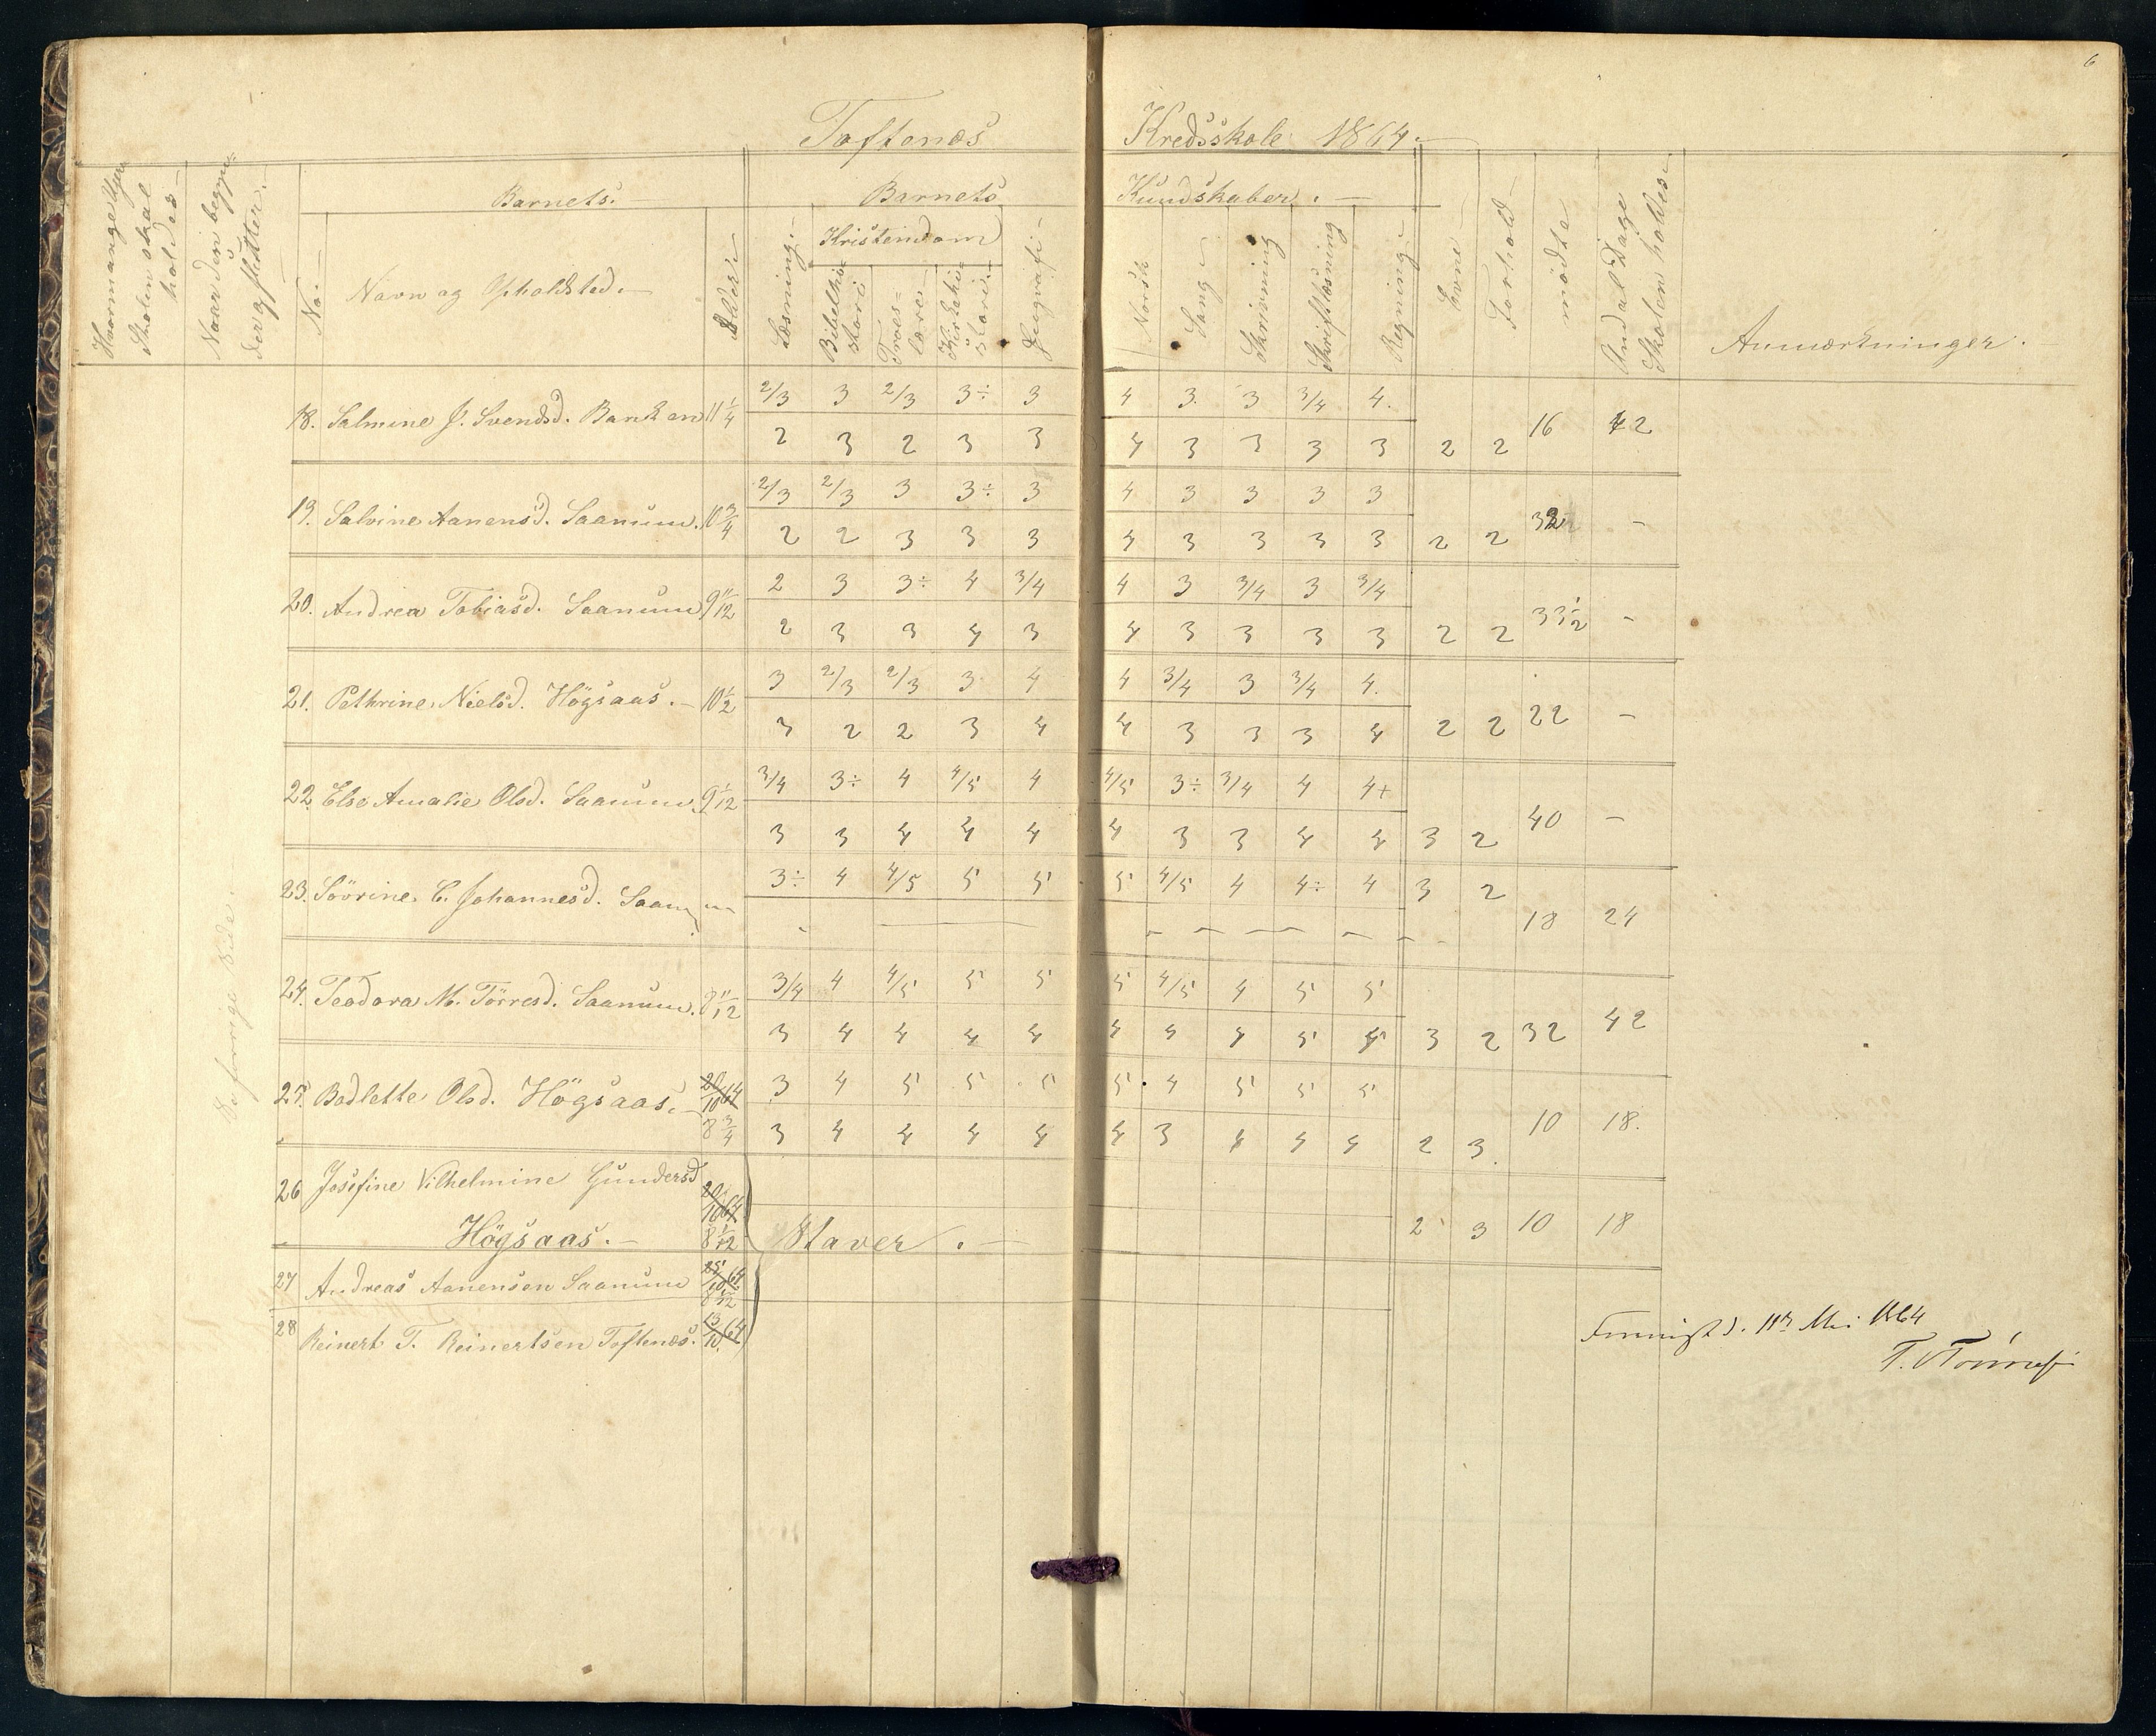 6
Toftenæs Kredsskole 1864.
Hvormange Uger Skolen skal holdes
Naar den begynder og slutter.
Barnets.
No.
Navn og Opholdsted.
Alder
Barnets Kundskaber.
Læsning.
Kristendom
Bibelhistorie
Troeslære
Kirkehistorie
Geografi
Norsk
Sang
Skrivning
Skriftlæsning
Regning
Evne
Forhold
mødte
Andal Dage Skolen holdes
Anmærkninger.
Se forrige Side.
18. Salmine J. Svendsd. Banken 11 1/4 2/3 3 2/3 3÷ 3 4 3. 3 3/4 4. 16 42
2 3 2 3 3 4 3 3 3 3 2 2
19. Salvine Aanensd. Saanum. 10 3/4 2/3 2/3 3 3÷ 3 4 3 3 3 3 32 –
2 2 3 3 3 4 3 3 3 3 2 2
20. Andrea Tobiasd. Saanum 9 11/12 2 3 3÷ 4 3/4 4 3 3/4 3 3/4 33 1/2 –
2 3 3 4 3 4 3 3 3 3 2 2
21. Pethrine Nielsd. Högsaas. – 10 1/2 3 2/3 2/3 3 4 4 3/4 3 3/4 4. 22 –
3 2 2 3 4 4 3 3 3 4 2 2
22. Else Amalie Olsd. Saanum. 9 1/12 3/4 3÷ 4 4/5 4 4/5 3÷ 3/4 4 4+ 40 –
3 3 4 4 4 4 3 3 4 4 3 2
23. Söörine C. Johannesd. Saanum 3÷ 4 4/5 5 5 5 4/5 4 4÷ 4 3 2 18 24
24. Teodora M. Törresd. Saanum. 8 11/12 3/4 4 4/5 5 5 5 4/5 4 5 5 32 42
3 4 4 4 4 4 4 4 5 5 3 2
25. Bodlette Olsd. Högsaas. 20/10 64 8 3/4 3 4 5 5 5 5 4 5 5 5 10 18.
3 4 4 4 4 4 3 4 4 4 2 3.
26 Josefine Vilhelmine Gundersd 20/10 64
Högsaas. – 8 1/12 Staver. – 2 3 10 18
27 Andreas Aanensen Saanum 25/10 64
28 Reinert T. Reinertsen Toftenæs. 13/10 64
d. 11te Mai 1864